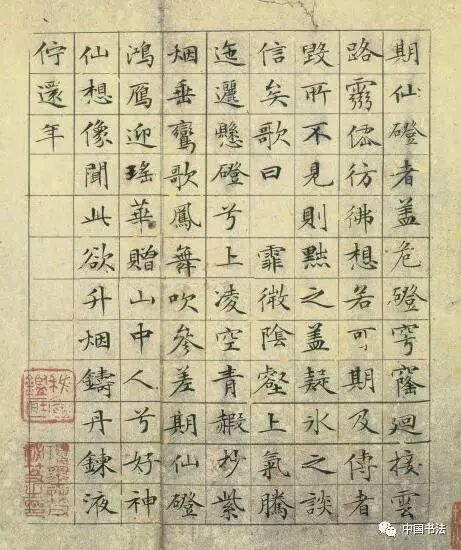 期仙磴者盖危磴穹窿迴接雲
路靈僊彷佛想若可期及傳者
毀所不見則黜之盖疑冰之談
信矣歌曰 霏微陰壑上氣騰
迤邐懸磴兮上凌空青赮杪紫
烟垂鸞歌鳳舞吹參差期仙磴
鴻鴈迎瑤華贈山中人兮好神
仙想像聞此欲升烟鑄丹鍊液
佇還年
中国书法